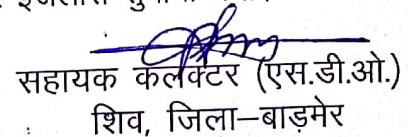 सहायक कलेक्टर (एस.डी.ओ.)
शिव, जिला–बाड़मेर